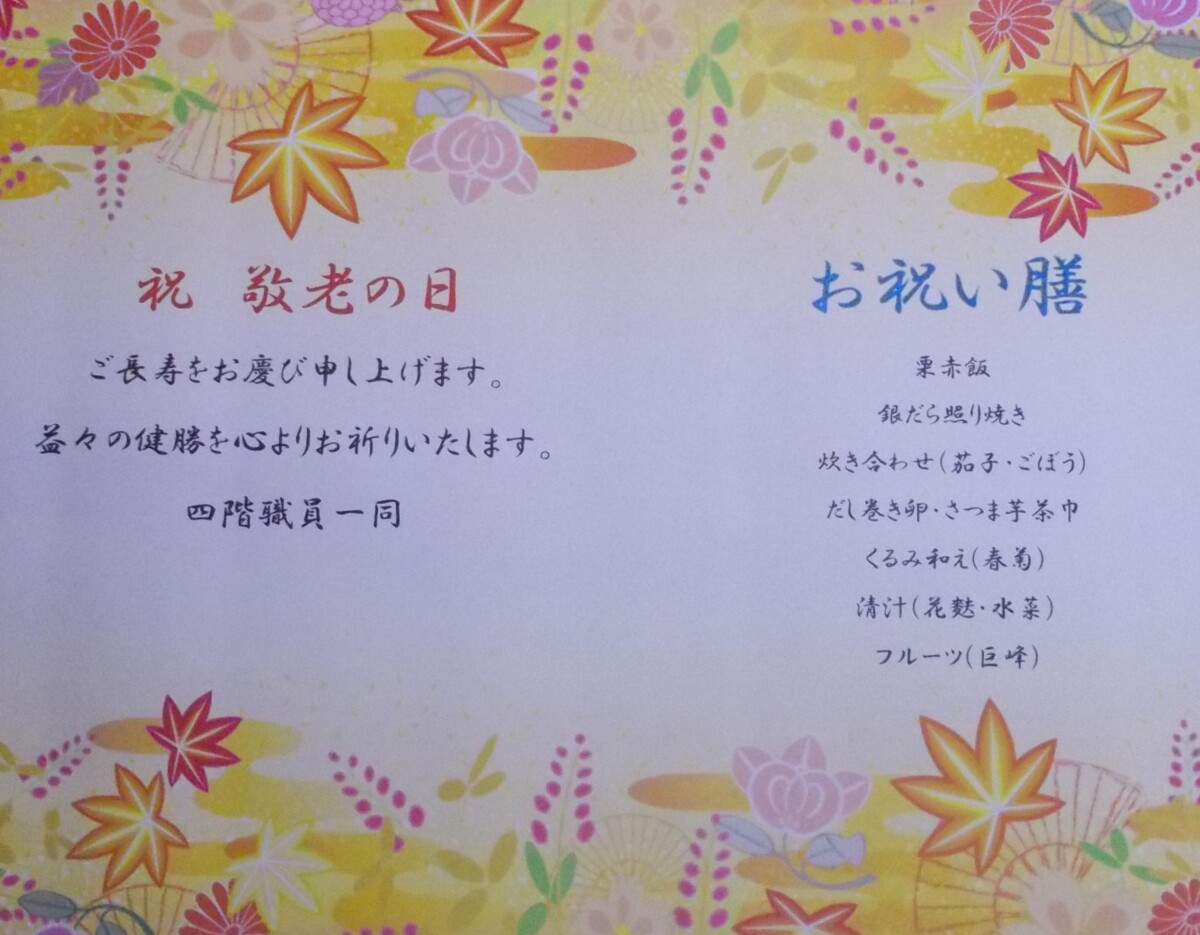 祝 敬老の日
ご長寿をお慶び申し上げます。
益々の健勝を心よりお祈りいたします。
四階職員一同
お祝い膳
栗赤飯
銀だら照り焼き
炊き合わせ(茄子・ごぼう)
だし巻き卵・さつま芋茶巾
くるみ和え(春菊)
清汁(花麩・水菜)
フルーツ(巨峰)